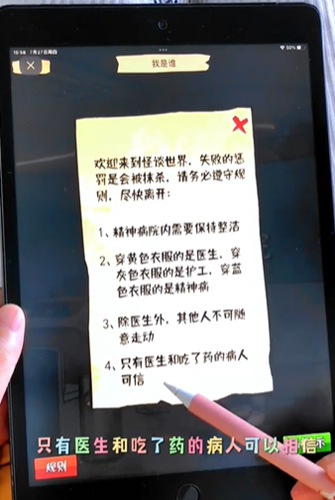 15:58 7月27日周四
50%
我是谁
欢迎来到怪谈世界，失败的惩
罚是会被抹杀，请务必遵守规
则，尽快离开：
1、精神病院内需要保持整洁
2、穿黄色衣服的是医生，穿
灰色衣服的是护工，穿蓝
色衣服的是精神病
3、除医生外，其他人不可随
意走动
4、只有医生和吃了药的病人
可信
只有医生和吃了药的病人可以相信
规则